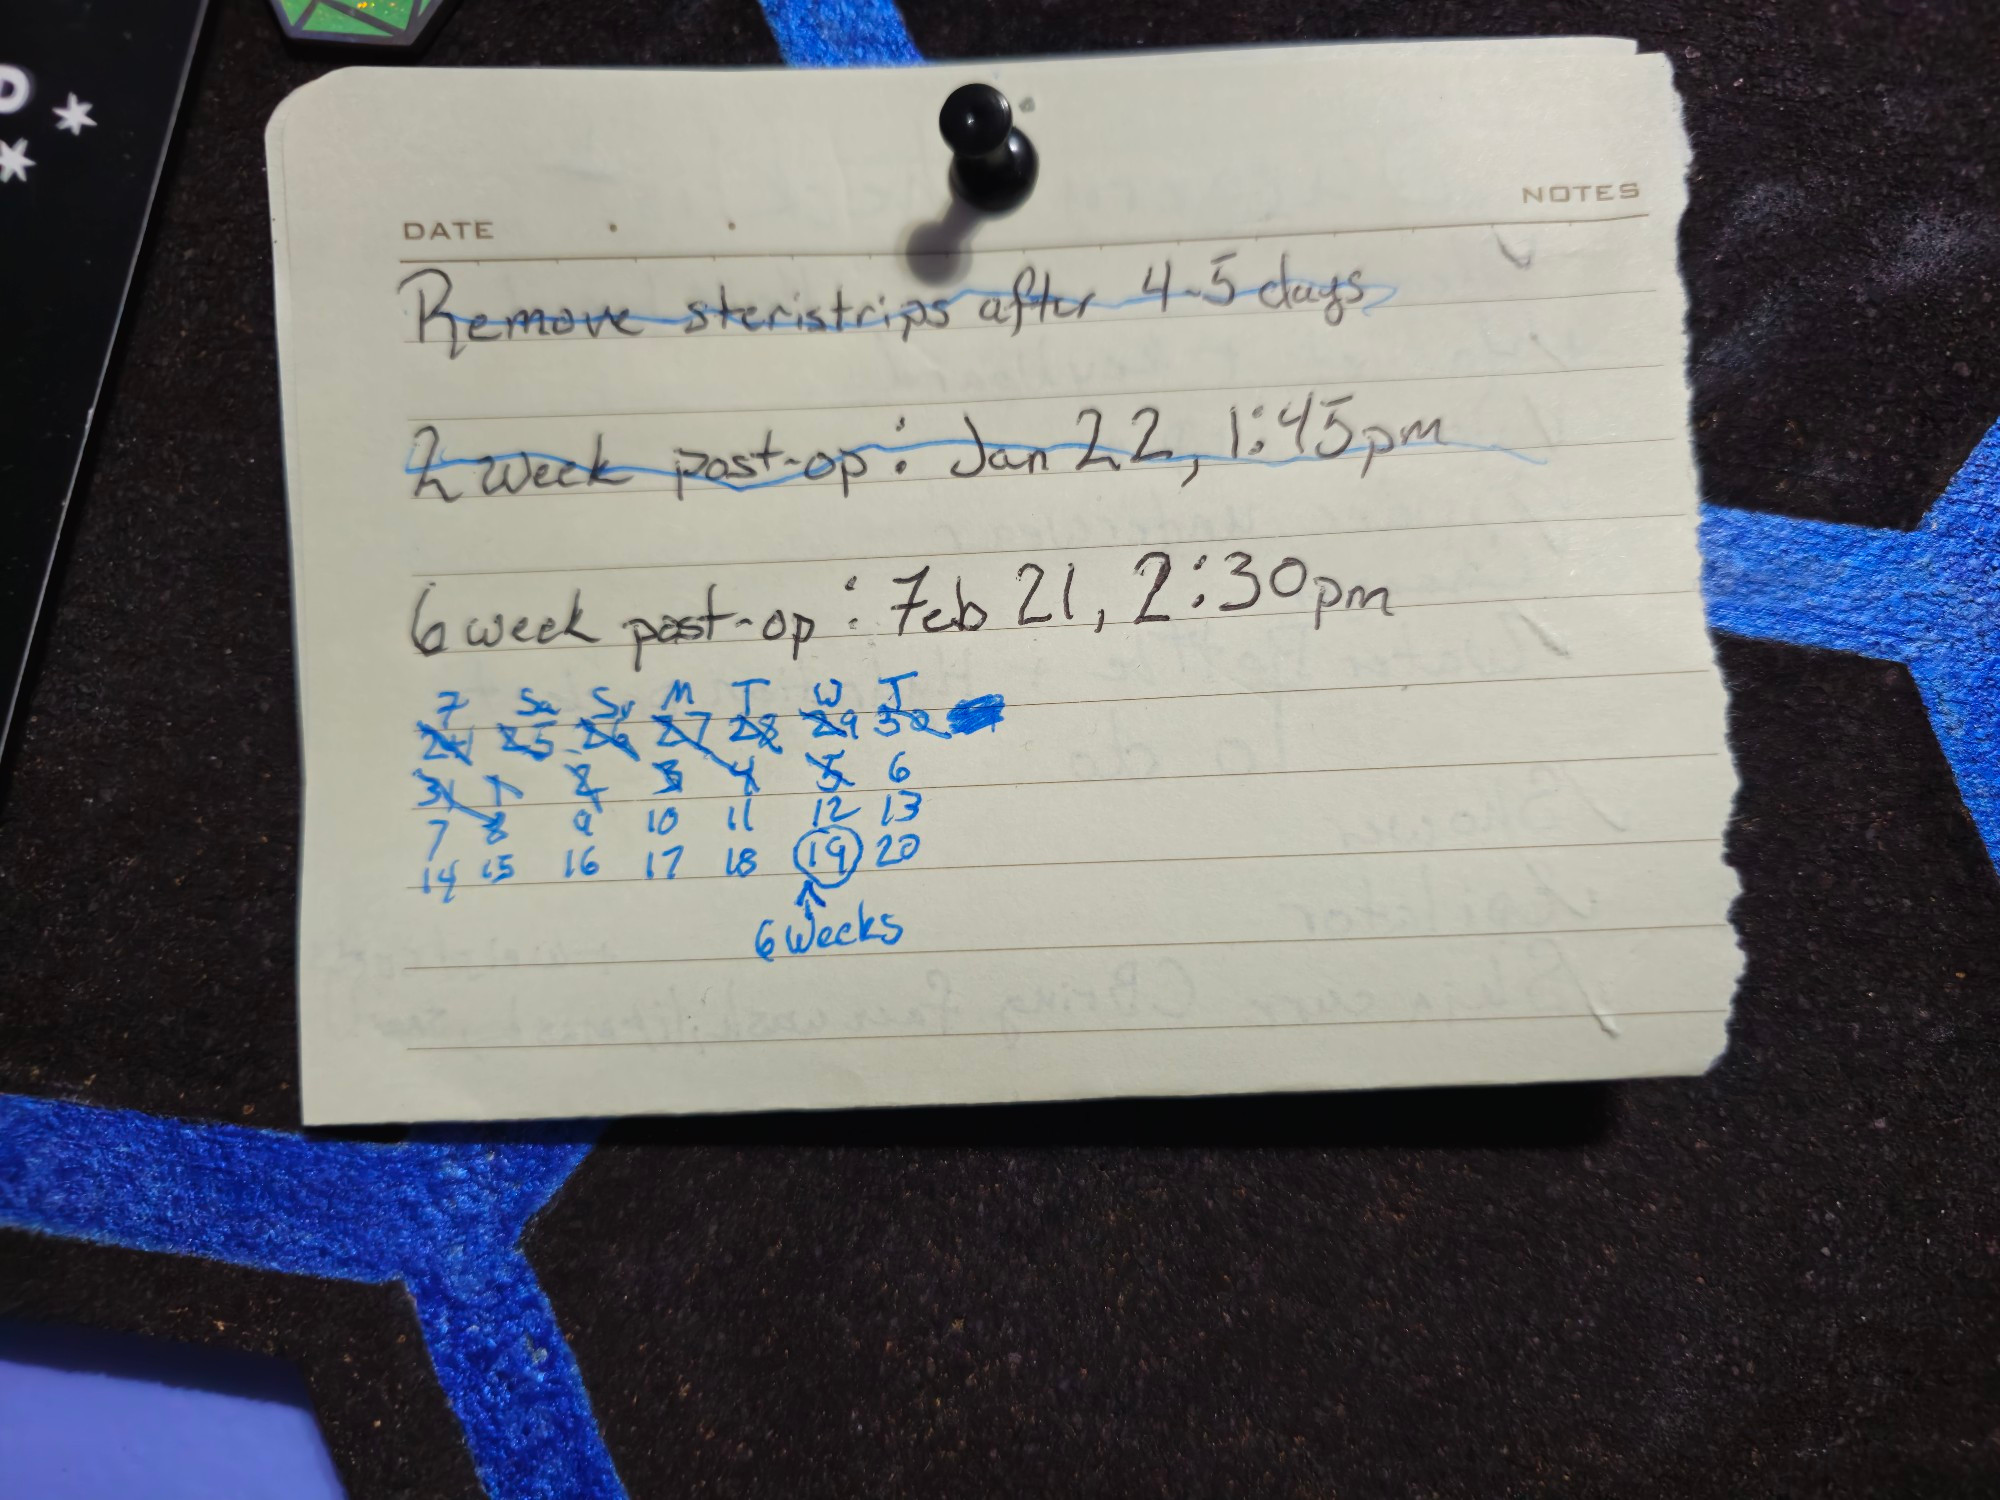 DATE
NOTES
Remove steristrips after 4-5 days
2 week post-op: Jan 22, 1:45pm
6 week post-op: Feb 21, 2:30pm
F Sa Su M T W T
24 25 26 27 28 29 30
31 1 2 3 4 5 6
7 8 9 10 11 12 13
14 15 16 17 18 19 20
6 weeks